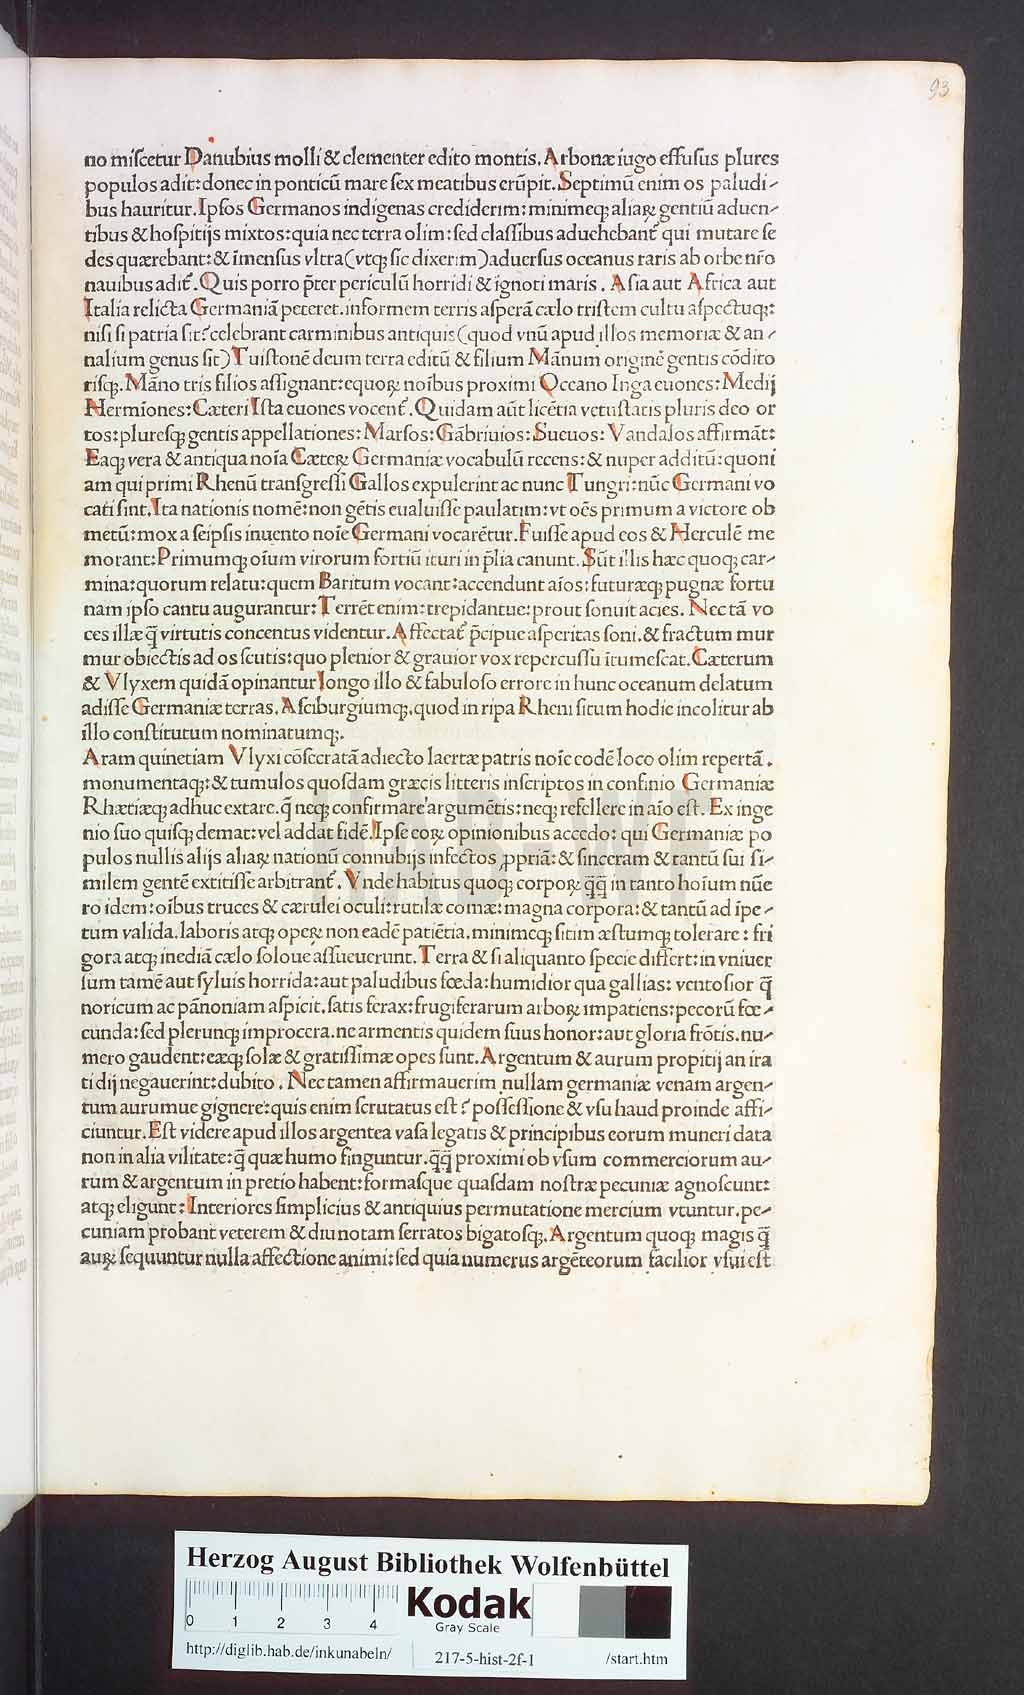 93
no miſcetur Danubius molli & clementer edito montis. Arbonæ iugo effuſus plures
populos adit: donec in ponticū mare ſex meatibus erūpit. Septimū enim os paludi-
bus hauritur. Ipſos Germanos indigenas crediderim: minimeqꝫ aliaꝝ gentiū aduen-
tibus & hoſpitijs mixtos: quia nec terra olim: ſed claſſibus aduehebant᷑ qui mutare ſe
des quærebant: & īmenſus vltra (vtqꝫ ſic dixerim) aduerſus oceanus raris ab orbe nr̄o
nauibus adit᷑. Quis porro p̄ter periculū horridi & ignoti maris. Aſia aut Africa aut
Italia relicta Germaniā peteret. informem terris aſperā cælo triſtem cultu aſpectuqꝫ:
niſi ſi patria ſit? celebrant carminibus antiquis (quod vnū apud illos memoriæ & an-
nalium genus ſit) Tuiſtonē deum terra editū & filium Mānum originē gentis cōdito
riſqꝫ. Māno tris filios aſſignant: e quoꝝ noībus proximi Oceano Ingaeuones: Medij
Hermīones: Cæteri Iſtaeuones vocent᷑. Quidam aūt licētia vetuſtatis pluris deo or
tos: plureſqꝫ gentis appellationes: Marſos: Gābriuios: Sueuos: Vandalos affirmāt:
Eaqꝫ vera & antiqua noīa Cæteꝝ Germaniæ vocabulū recens: & nuper additū: quoni
am qui primi Rhenū tranſgreſſi Gallos expulerint ac nunc Tungri: nūc Germani vo
cati ſint. Ita nationis nomē: non gētis eualuiſſe paulatim: vt oēs primum a victore ob
metū: mox a ſeipſis inuento noīe Germani vocarētur. Fuiſſe apud eos & Herculē me
morant: Primumqꝫ oīum virorum fortiū ituri in p̄lia canunt. Sūt illis hæc quoqꝫ car-
mina: quorum relatu: quem Baritum vocant: accendunt aīos: futuræqꝫ pugnæ fortu
nam ipſo cantu augurantur: Terrēt enim: trepidantue: prout ſonuit acies. Nec tā vo
ces illæ q̄ virtutis concentus videntur. Affectat᷑ p̄cipue aſperitas ſoni. & fractum mur
mur obiectis ad os ſcutis: quo plenior & grauior vox repercuſſu ītumeſcat. Cæterum
& Vlyxem quidā opinantur longo illo & fabuloſo errore in hunc oceanum delatum
adiſſe Germaniæ terras. Aſciburgiumqꝫ. quod in ripa Rheni ſitum hodie incolitur ab
illo conſtitutum nominatumqꝫ.
Aram quinetiam Vlyxi cōſecratā adiecto laertæ patris noīe eodē loco olim repertā.
monumentaqꝫ: & tumulos quoſdam græcis litteris inſcriptos in confinio Germaniæ
Rhætiæqꝫ adhuc extare. q̄ neqꝫ confirmare argumētis: neqꝫ refellere in aīo eſt. Ex inge
nio ſuo quiſqꝫ demat: vel addat fidē. Ipſe eoꝝ opinionibus accedo: qui Germaniæ po
pulos nullis alijs aliaꝝ nationū connubijs infectos ꝓpriā: & ſinceram & tantū ſui ſi-
milem gentē extitiſſe arbitrant᷑. Vnde habitus quoqꝫ corpoꝝ q̄q̄ in tanto hoīum nūe
ro idem: oībus truces & cærulei oculi: rutilæ comæ: magna corpora: & tantū ad īpe-
tum valida. laboris atqꝫ opeꝝ non eadē patiētia. minimeqꝫ ſitim æſtumqꝫ tolerare: fri
gora atqꝫ inediā cælo ſoloue aſſueuerunt. Terra & ſi aliquanto ſpecie differt: in vniuer
ſum tamē aut ſyluis horrida: aut paludibus fœda: humidior qua gallias: ventoſior q̄
noricum ac pānoniam aſpicit. ſatis ferax: frugiferarum arboꝝ impatiens: pecorū fœ-
cunda: ſed plerunqꝫ improcera. ne armentis quidem ſuus honor: aut gloria frōtis. nu-
mero gaudent: eæqꝫ ſolæ & gratiſſimæ opes ſunt. Argentum & aurum propitij an ira
ti dij negauerint: dubito. Nec tamen affirmauerim nullam germaniæ venam argen-
tum aurumue gignere: quis enim ſcrutatus eſt? poſſeſſione & vſu haud proinde affi-
ciuntur. Eſt videre apud illos argentea vaſa legatis & principibus eorum muneri data
non in alia vilitate: q̄ quæ humo finguntur. q̄q̄ proximi ob vſum commerciorum au-
rum & argentum in pretio habent: formaſque quaſdam noſtræ pecuniæ agnoſcunt:
atqꝫ eligunt: Interiores ſimplicius & antiquius permutatione mercium vtuntur. pe-
cuniam probant veterem & diu notam ſerratos bigatoſqꝫ. Argentum quoqꝫ magis q̄
auꝝ ſequuntur nulla affectione animi: ſed quia numerus argēteorum facilior vſui eſt
HAB-WF
Herzog August Bibliothek Wolfenbüttel
0 1 2 3 4
Kodak
Gray Scale
http://diglib.hab.de/inkunabeln/ 217-5-hist-2f-1 /start.htm